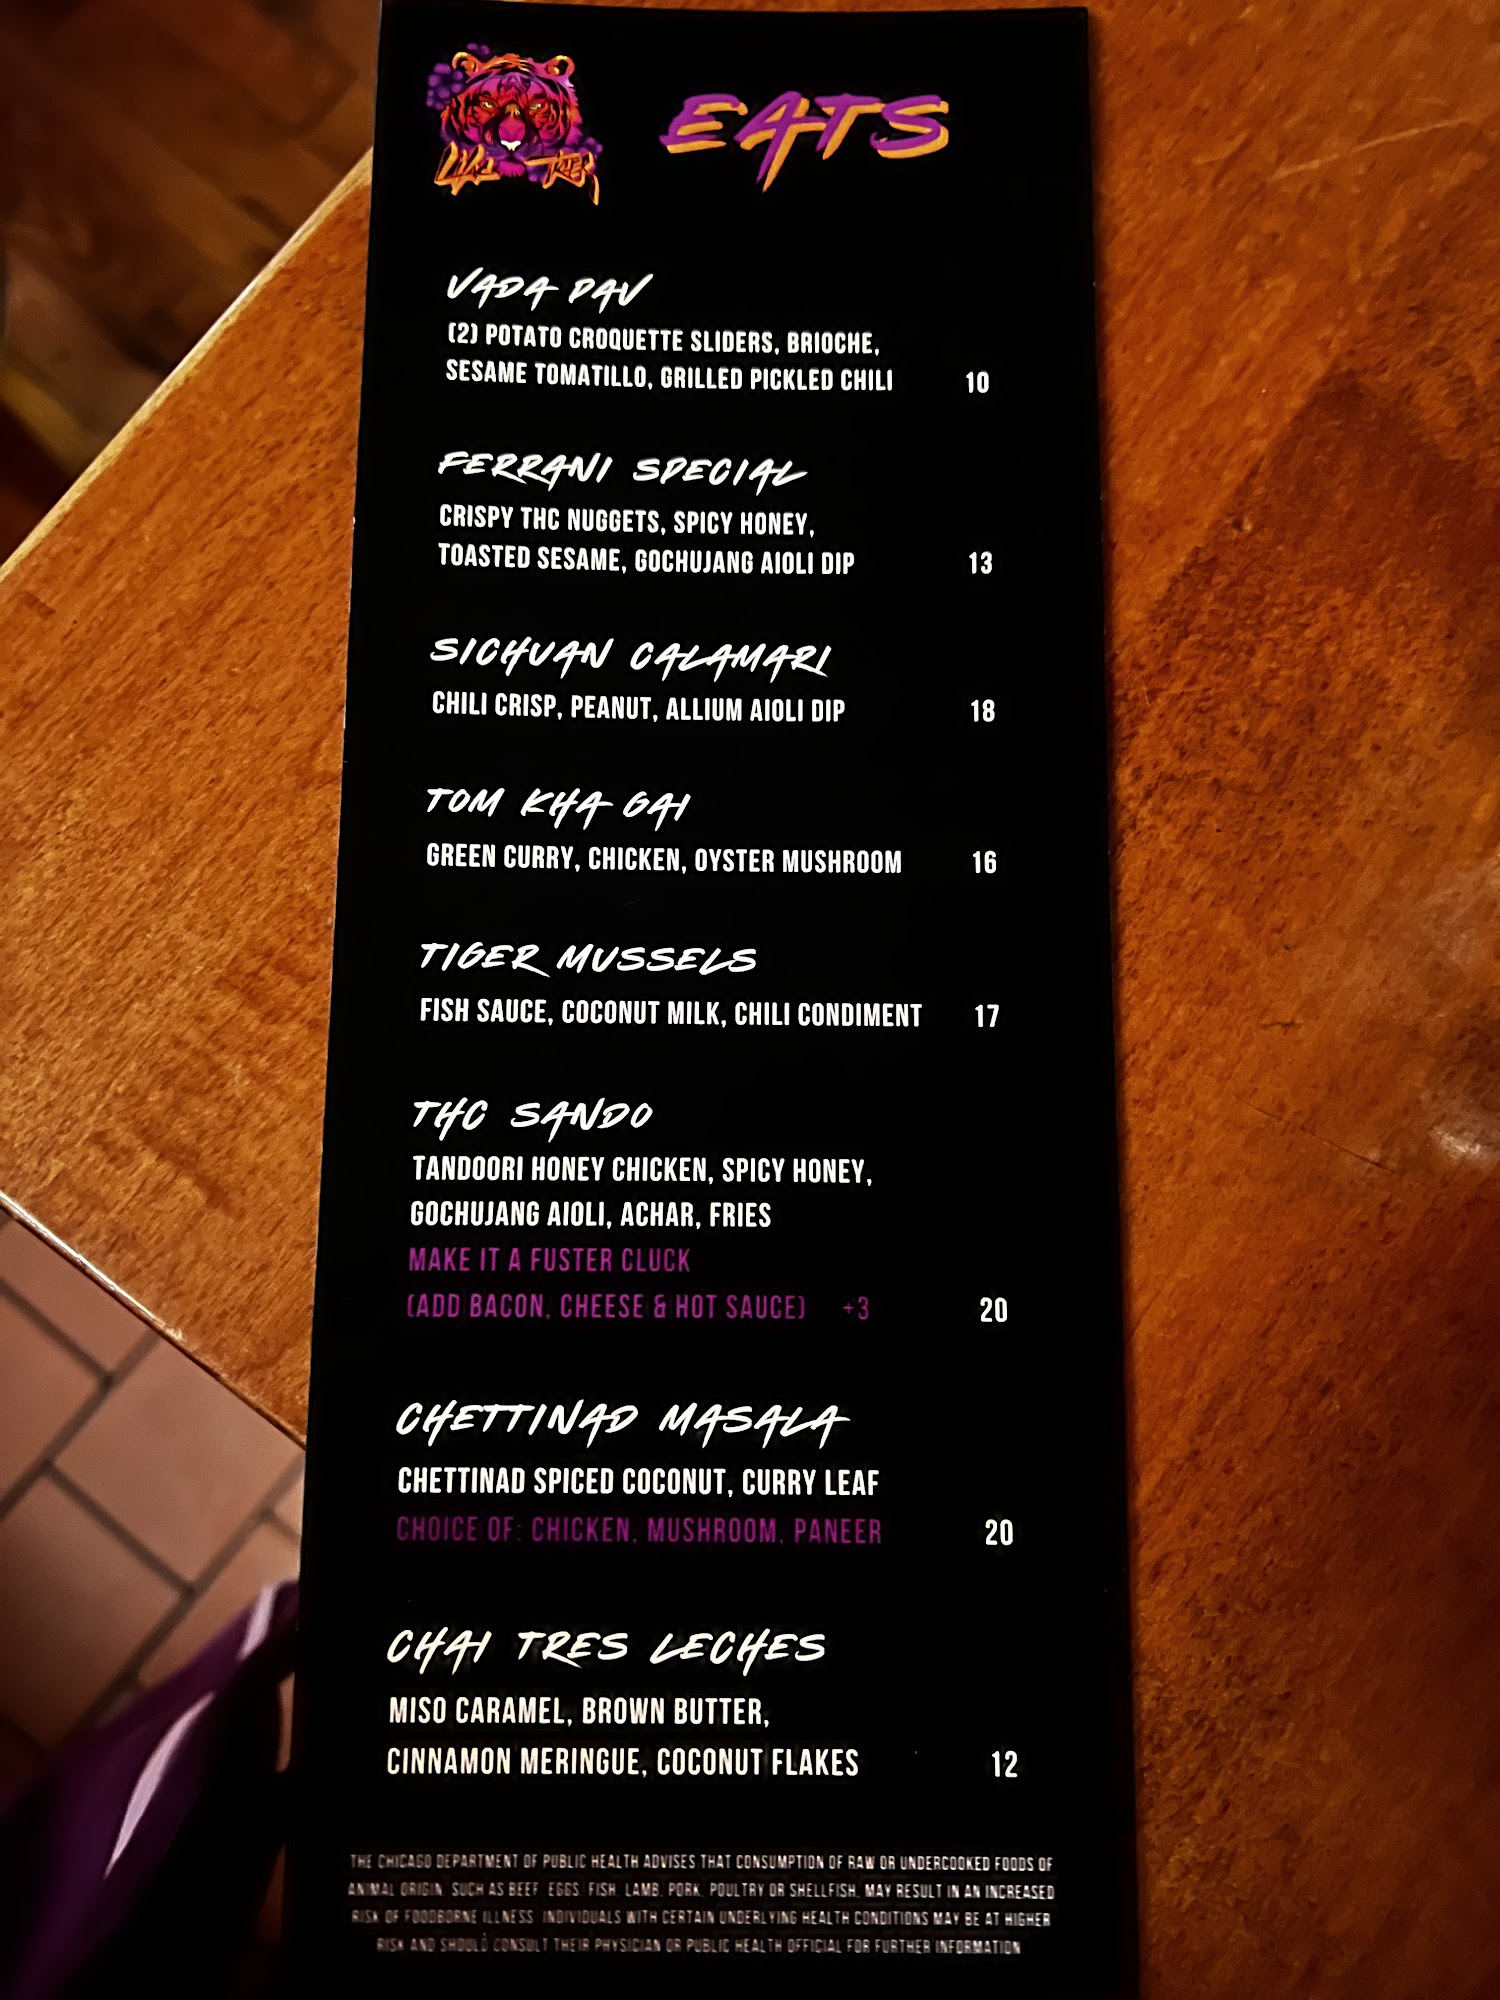 LILAC TIGER
EATS
VADA PAV
(2) POTATO CROQUETTE SLIDERS, BRIOCHE,
SESAME TOMATILLO, GRILLED PICKLED CHILI 10
FERRANI SPECIAL
CRISPY THC NUGGETS, SPICY HONEY,
TOASTED SESAME, GOCHUJANG AIOLI DIP 13
SICHUAN CALAMARI
CHILI CRISP, PEANUT, ALLIUM AIOLI DIP 18
TOM KHA GAI
GREEN CURRY, CHICKEN, OYSTER MUSHROOM 16
TIGER MUSSELS
FISH SAUCE, COCONUT MILK, CHILI CONDIMENT 17
THC SANDO
TANDOORI HONEY CHICKEN, SPICY HONEY,
GOCHUJANG AIOLI, ACHAR, FRIES
MAKE IT A FUSTER CLUCK
(ADD BACON, CHEESE & HOT SAUCE) +3 20
CHETTINAD MASALA
CHETTINAD SPICED COCONUT, CURRY LEAF
CHOICE OF: CHICKEN, MUSHROOM, PANEER 20
CHAI TRES LECHES
MISO CARAMEL, BROWN BUTTER,
CINNAMON MERINGUE, COCONUT FLAKES 12
THE CHICAGO DEPARTMENT OF PUBLIC HEALTH ADVISES THAT CONSUMPTION OF RAW OR UNDERCOOKED FOODS OF
ANIMAL ORIGIN, SUCH AS BEEF, EGGS, FISH, LAMB, PORK, POULTRY OR SHELLFISH, MAY RESULT IN AN INCREASED
RISK OF FOODBORNE ILLNESS. INDIVIDUALS WITH CERTAIN UNDERLYING HEALTH CONDITIONS MAY BE AT HIGHER
RISK AND SHOULD CONSULT THEIR PHYSICIAN OR PUBLIC HEALTH OFFICIAL FOR FURTHER INFORMATION